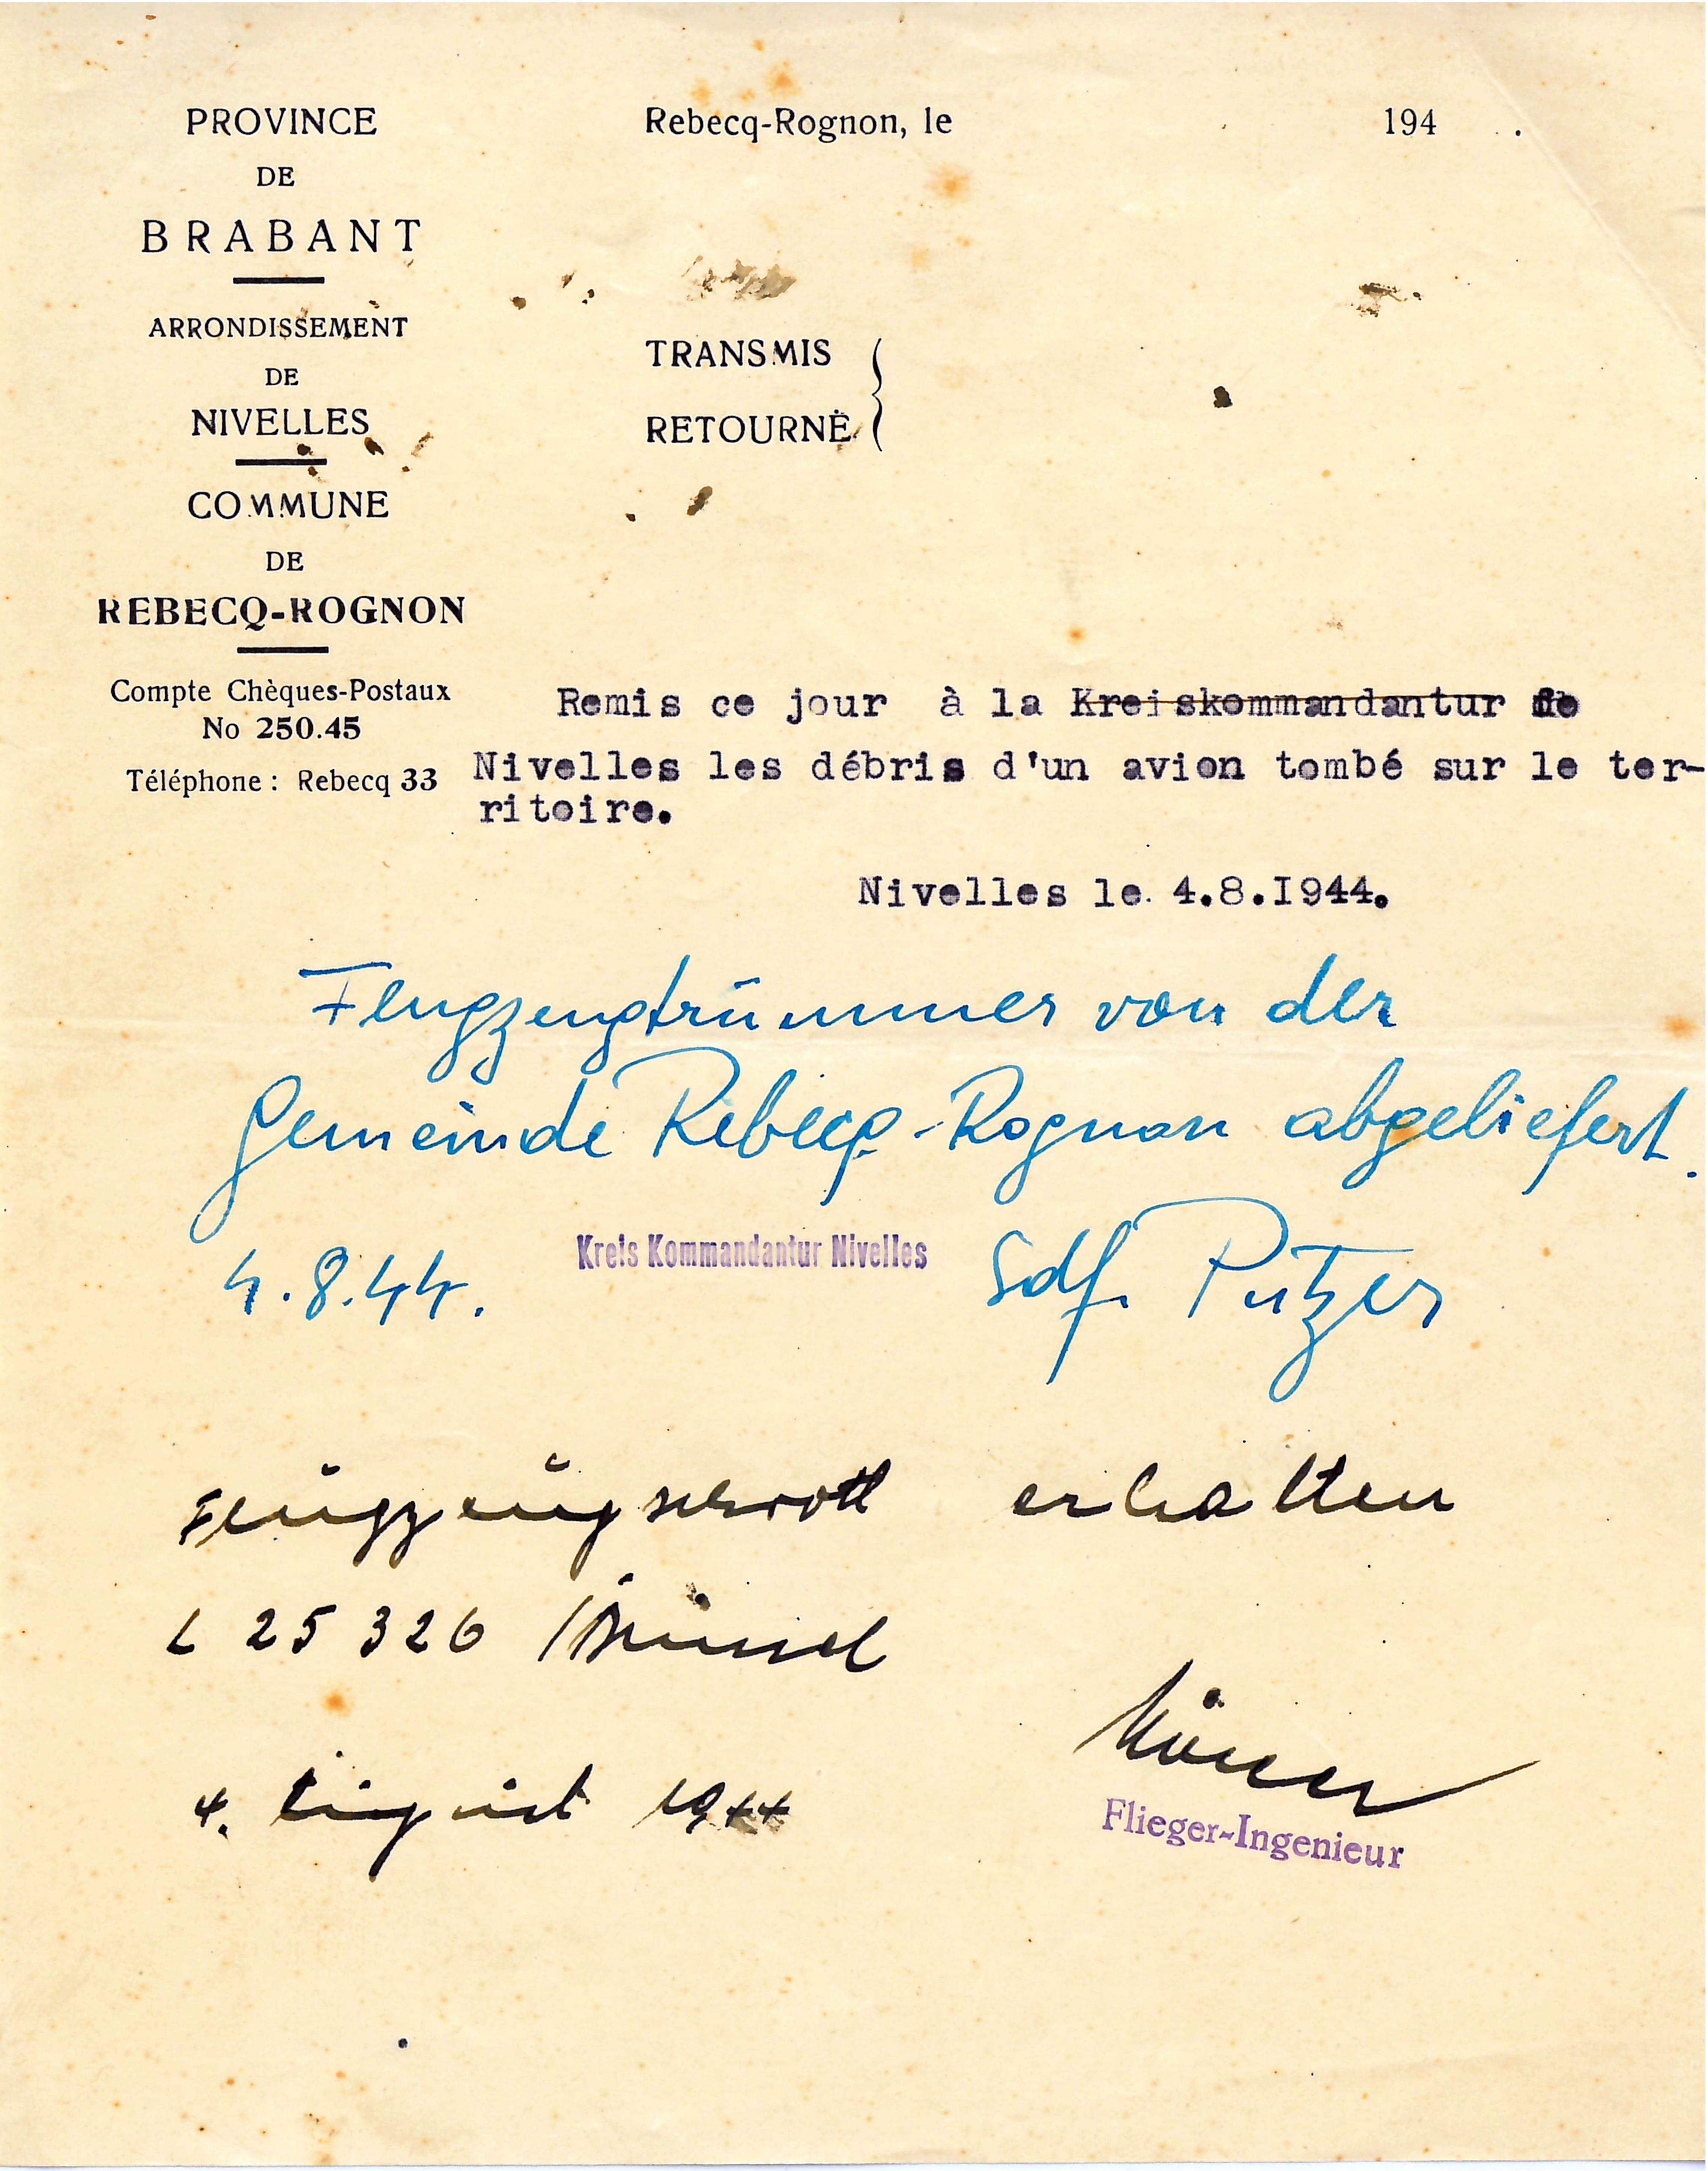 PROVINCE
DE
BRABANT
ARRONDISSEMENT
DE
NIVELLES
COMMUNE
DE
REBECQ-ROGNON
Compte Chèques-Postaux
No 250.45
Téléphone : Rebecq 33
Rebecq-Rognon, le 194 .
TRANSMIS
RETOURNÉ
Remis ce jour à la Kreiskommandantur de
Nivelles les débris d'un avion tombé sur le ter-
ritoire.
Nivelles le. 4.8.I944.
Flugzeugtrümmer von der
Gemeinde Rebecq-Rognon abgeliefert.
4.8.44.
Kreis Kommandantur Nivelles
Sdf. Putzer
Flugzeugschrott erhalten
L 25 326 / Brüssel
4. August 1944
Flieger-Ingenieur